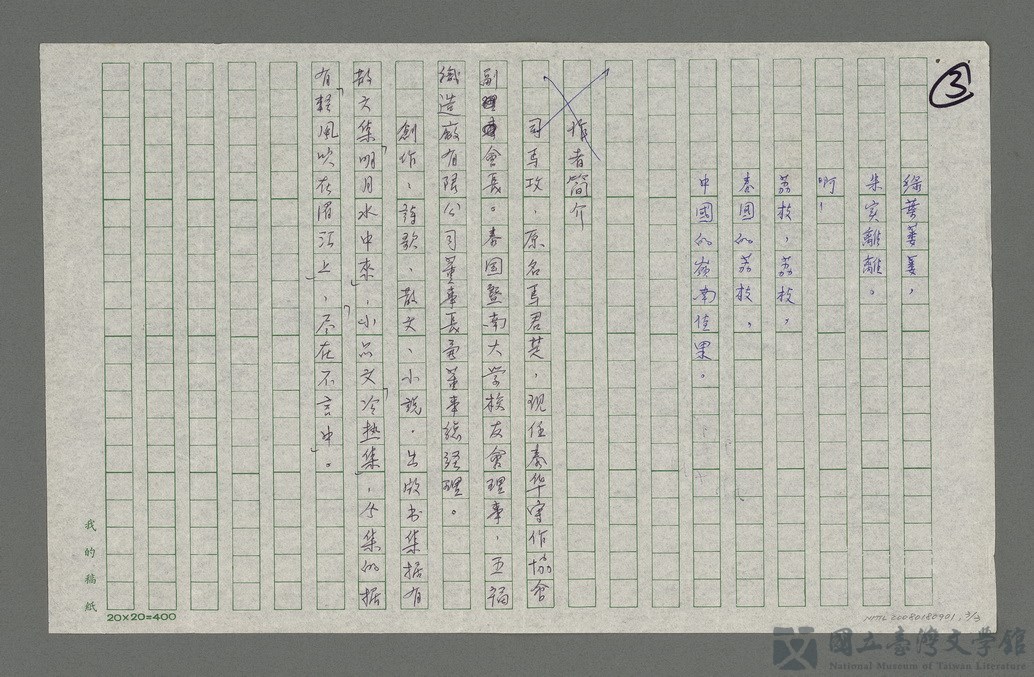 ③
綠葉萋萋，
朱实離離。
啊！
荔枝，荔枝，
泰国的荔枝，
中國的嶺南佳果。
作者简介
司马攻，原名马君楚，现任泰华写作協會
副會長。泰国暨南大学校友會理事，五福
織造廠有限公司董事長兼董事總经理。
創作：詩歌、散文、小説。出版书集据有
散文集「明月水中來」，小品文「冷热集」，合集的据
有「輕風吹在湄江上」，「尽在不言中」。
我的稿紙
20×20=400
NMTL20080180901, 3/3
國立臺灣文學館
National Museum of Taiwan Literature